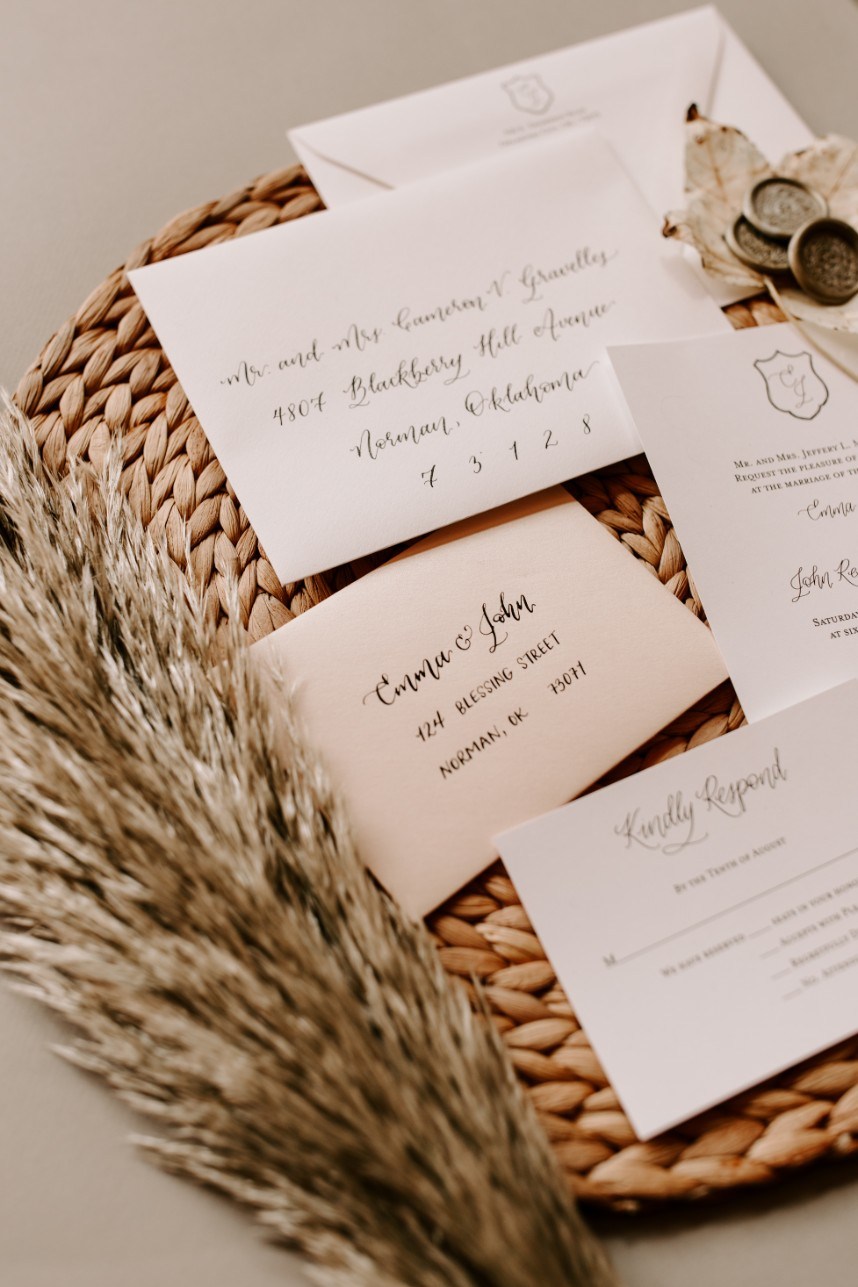 Mr. and Mrs Cameron V Gravelles
4807 Blackberry Hill Avenue
Norman, Oklahoma
7 3 1 2 8
Emma & John
124 BLESSING STREET
NORMAN, OK 73071
MR. AND MRS. JEFFERY L.
REQUEST THE PLEASURE OF
AT THE MARRIAGE OF
Emma
John
SATURDAY
AT SIX
Kindly Respond
BY THE TENTH OF AUGUST
M
WE HAVE RESERVED ___ SEATS IN YOUR
ACCEPTS WITH